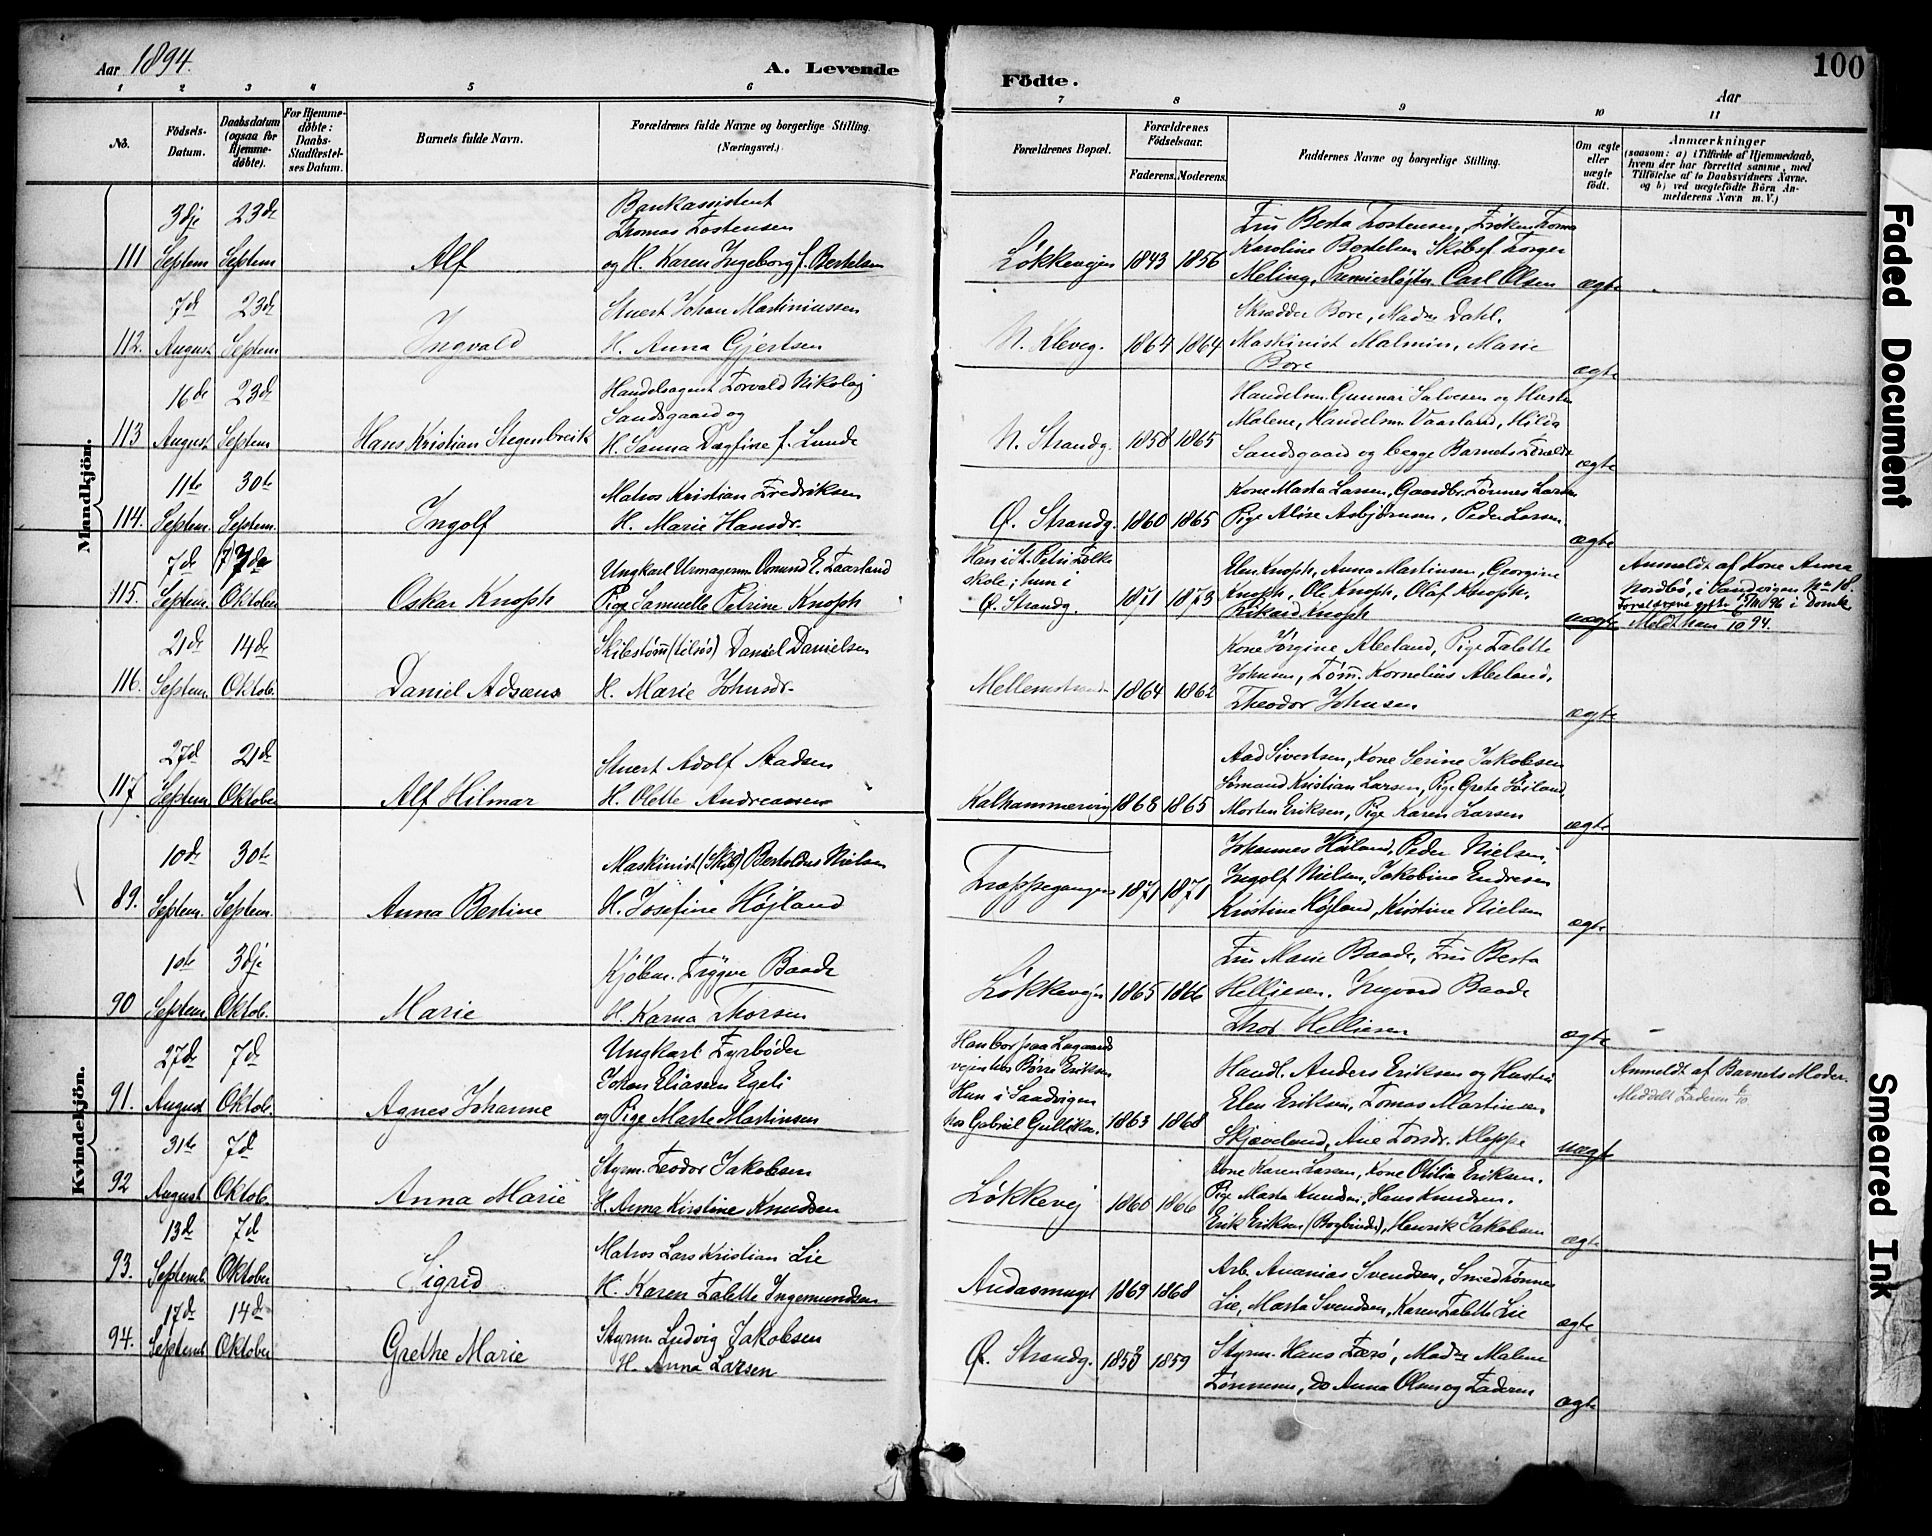 Aar 1894.
A. Levende
Födte.
100
Aar
1 2 3 4 5 6 7 8 9 10 11
No.
Födsels-
Datum.
Daabsdatum
(ogsaa for
Hjemme-
døbte).
For Hjemme-
døbte:
Daabs-
Stadfæstel-
ses Datum.
Barnets fulde Navn.
Forældrenes fulde Navne og borgerlige Stilling.
(Næringsvei.)
Forældrenes Bopæl.
Forældrenes
Födselsaar.
Faderens. Moderens.
Faddernes Navne og borgerlige Stilling.
Om ægte
eller
uægte
født.
Anmærkninger
(saasom: a) i Tilfælde af Hjemmedaab,
hvem der har forrettet samme, med
Tilföielse af to Daabsvidners Navne.
og b) ved uægtefödte Börn An-
melderens Navn m. V.)
Mandkjön.
111
3dje
Septem
23de
Septem
Alf
Bankassistent
Thomas Tostensen
og H. Karen Ingeborg f. Bertelsen
Løkkevejen
1843 1856
Fru Berta Tostensen, Frøken Thoma
Karoline Bertelsen Skibsf. Torger
Meling, Premierløjtn. Carl Olsen
ægte
112.
7d
August
23de
Septem
Ingvald
Stuert Johan Martiniussen
H. Anna Gjertsen
N. Kleveg.
1864 1864
Skrædder Bore, Mad. Dahl,
Maskinist Malmin, Marie
Bore
ægte
113
16de
August
23de
Septem
Hans Kristian Stegenbreik
Handelsagent Torvald Nikolaj
Sandsgaard og
H. Sanna Dagfine f. Lunde
N. Strandg.
1858 1865
Handelsm. Gunnar Salvesen og Hustru
Malene, Handelsm. Vaarland, Hilda
Sandsgaard og begge Barnets Forældre
ægte
114.
11te
Septem.
30te
Septem.
Ingolf
Matros Kristian Fredriksen
H. Marie Hansdr.
Ø. Strandg.
1860 1865
Kone Marta Larsen, Gaardbr. Tønnes Larsen
Pige Aløse Asbjørnsen, Peder Larsen.
ægte
115.
7d
Septem.
7de
Oktober
Oskar Knoph
Ungkarl Urmagerm. Osmund E. Taarland
Pige Samuelle Petrine Knoph
Han i St. Petri Folke
skole; hun i
Ø. Strandg.
1871 1873
Elen Knoph, Anna Martinsen, Georgine
Knoph, Ole Knoph, Olaf Knoph,
Rikard Knoph
uægte
Anmeldt af Kone Anna
Nordbø, i Sandvigen No 18.
Forældrene gifte i Domk.
Meldt ham 6/10 94.
116.
21de
Septem.
14de
Oktob.
Daniel Adsæus
Skibstømm (Lilsøs) Daniel Danielsen
H. Marie Johnsdr.
Mellemstrand
1864 1862
Kone Jørgine Abeland, Pige Talette
Johnsen, Tøm. Kornelius Abeland,
Theodor Johnsen
ægte
117
27d
Septem
21de
Oktober
Alf Hilmar
Stuert Adolf Aadsen
H. Olette Andreassen
Kalhammervig
1868 1865
Aad Sivertsen, Kone Serine Jakobsen
Sømand Kristian Larsen, Pige Grete Høiland,
Morten Eriksen, Pige Karen Larsen
ægte
Kvindekjön.
89.
10de
Septem.
30te
Septem.
Anna Bertine
Maskinist (Skib) Bertoldus Nielsen
H. Josefine Højland
Trappegangen
1871 1871
Johannes Høiland, Peder Nielsen,
Ingolf Nielsen, Jakobine Endresen
Kristine Højland, Kristine Nielsen
ægte
90
10te
Septem
3dje
Oktob.
Marie
Kjøbm. Trygve Baade
H. Karna Thorsen
Løkkevejen
1865 1866
Fru Marie Baade, Fru Berta
Helliesen. Ingvard Baade
Thor Helliesen
ægte
91.
27de
August
7d
Oktob.
Agnes Johanne
Ungkarl Fyrbøder
Johan Eliassen Egeli
og Pige Marte Martinsen
Han bor paa Lagaards
vejen hos Børre Eriksen
Hun i Sandvigen
hos Gabriel Gulliksen.
1863 1868
Handl. Anders Eriksen og Hustru
Elen Eriksen, Tomas Martinsen
Skjæveland, Ane Torsdr. Kleppe
uægte
Anmeldt af Barnets Moder.
Meddelt Faderen 8/10.
92
31te
August
7d
Oktob.
Anna Marie
Styrm. Teodor Jakobsen
H. Anna Kirstine Knudsen
Løkkevej
1860 1866
Kone Karen Larsen, Kone Otilia Eriksen.
Pige Marta Knudsen, Hans Knudsen.
Erik Eriksen (Bogbinder), Henrik Jakobsen
ægte
93.
13de
Septemb.
7d
Oktober
Sigrid
Matros Lars Kristian Lie
H. Karen Talette Ingemundsen
Andasmuget
1869 1868
Arb. Ananias Svendsen, Smed Tønnes
Lie, Marta Svendsen, Karen Talette Lie
ægte
94.
17de
Septemb
14de
Oktober
Grethe Marie
Styrm. Ludvig Jakobsen
H. Anna Larsen
Ø. Strandg.
1853 1859
Styrm. Hans Færø, Mad. Malene
Tønnesen, do Anna Olsen og Faderen
ægte
Faded Document
Smeared Ink